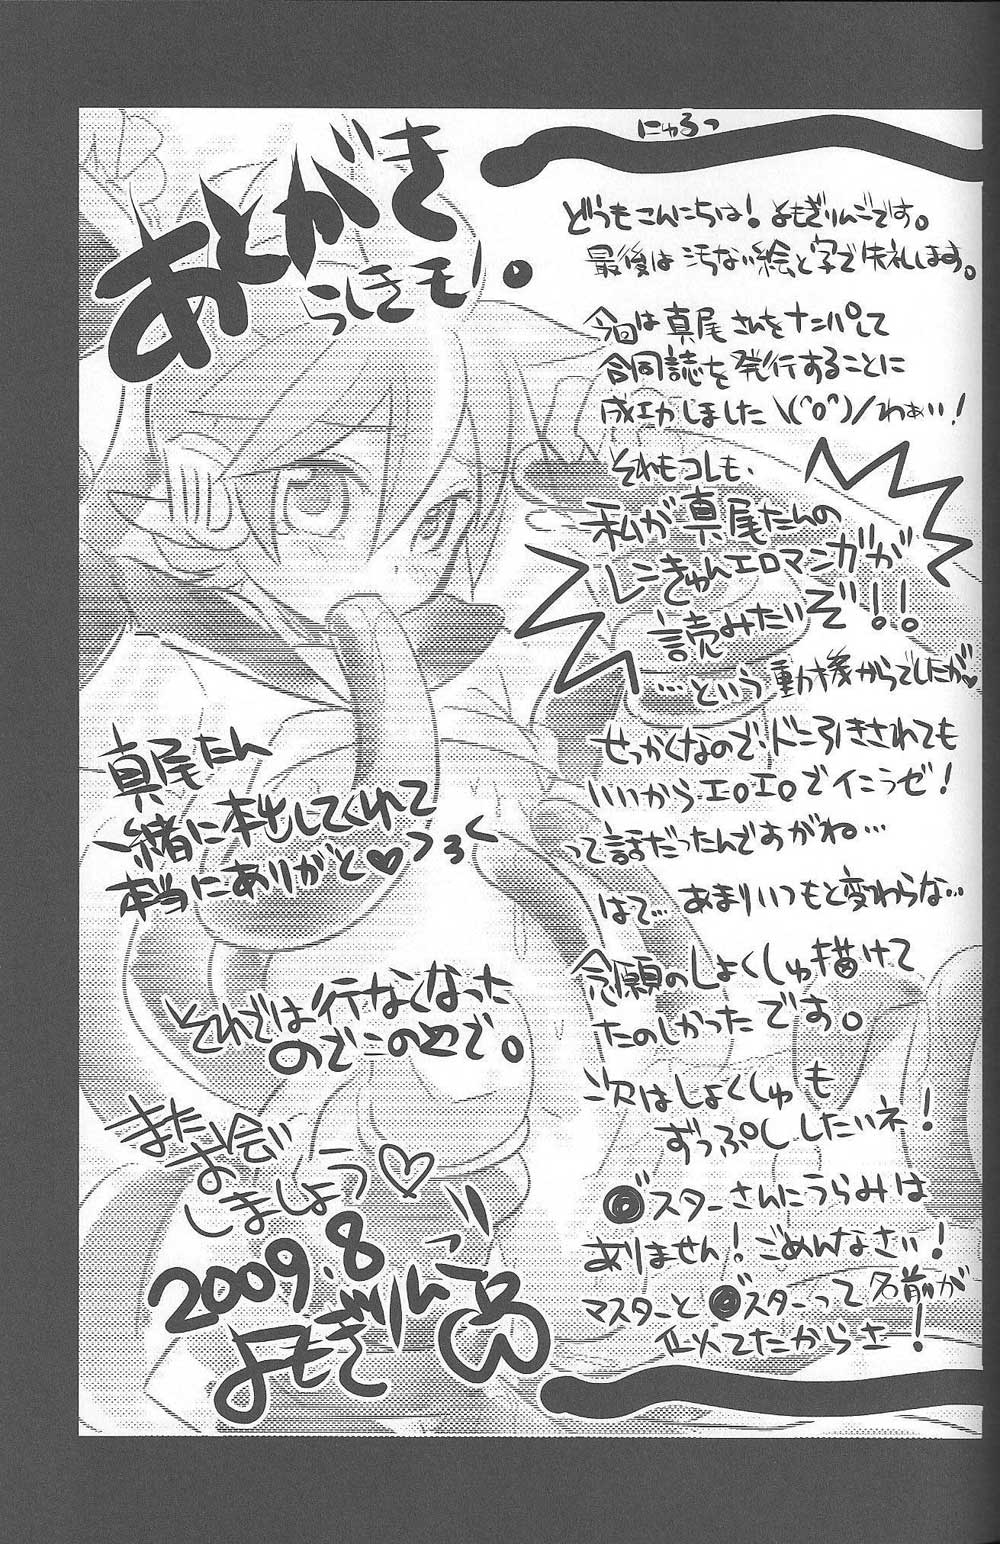 あとがき
らしきモノ。
にゅるっ
どうもこんにちは！よもぎりんごです。
最後は汚ない絵と字で失礼します。
今回は真尾さんをナンパして
合同誌を発行することに
成功しました\(^o^)/わぁい！
それもコレも、
私が真尾たんの
レンきゅんエロマンガが
読みたいぞ!!!
…という動機からでしたが♥
せっかくなので、ドン引きされても
いいからエロエロでイこうぜ！
って話だったんですがね…
はて… あまりいつもと変わらな…
念願のしょくしゅ描けて
たのしかったです。
次はしょくしゅも
ずっぷししたいネ！
◎スターさんにうらみは
ありません！ごめんなさい！
マスターと◎スターって名前が
似てたからさ！
真尾たん
一緒に本出してくれて
本当にありがと♥つろく
それでは行なくなった
のでこのへで。
またお会い
しましょう♡
2009.8
よもぎりんご